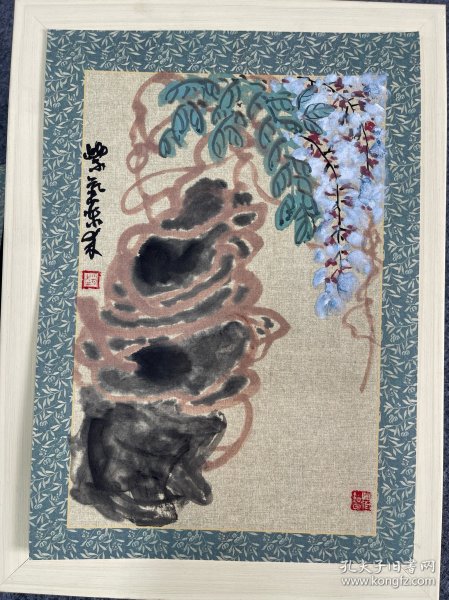 紫气东来
孔夫子旧书网
www.kongfz.com